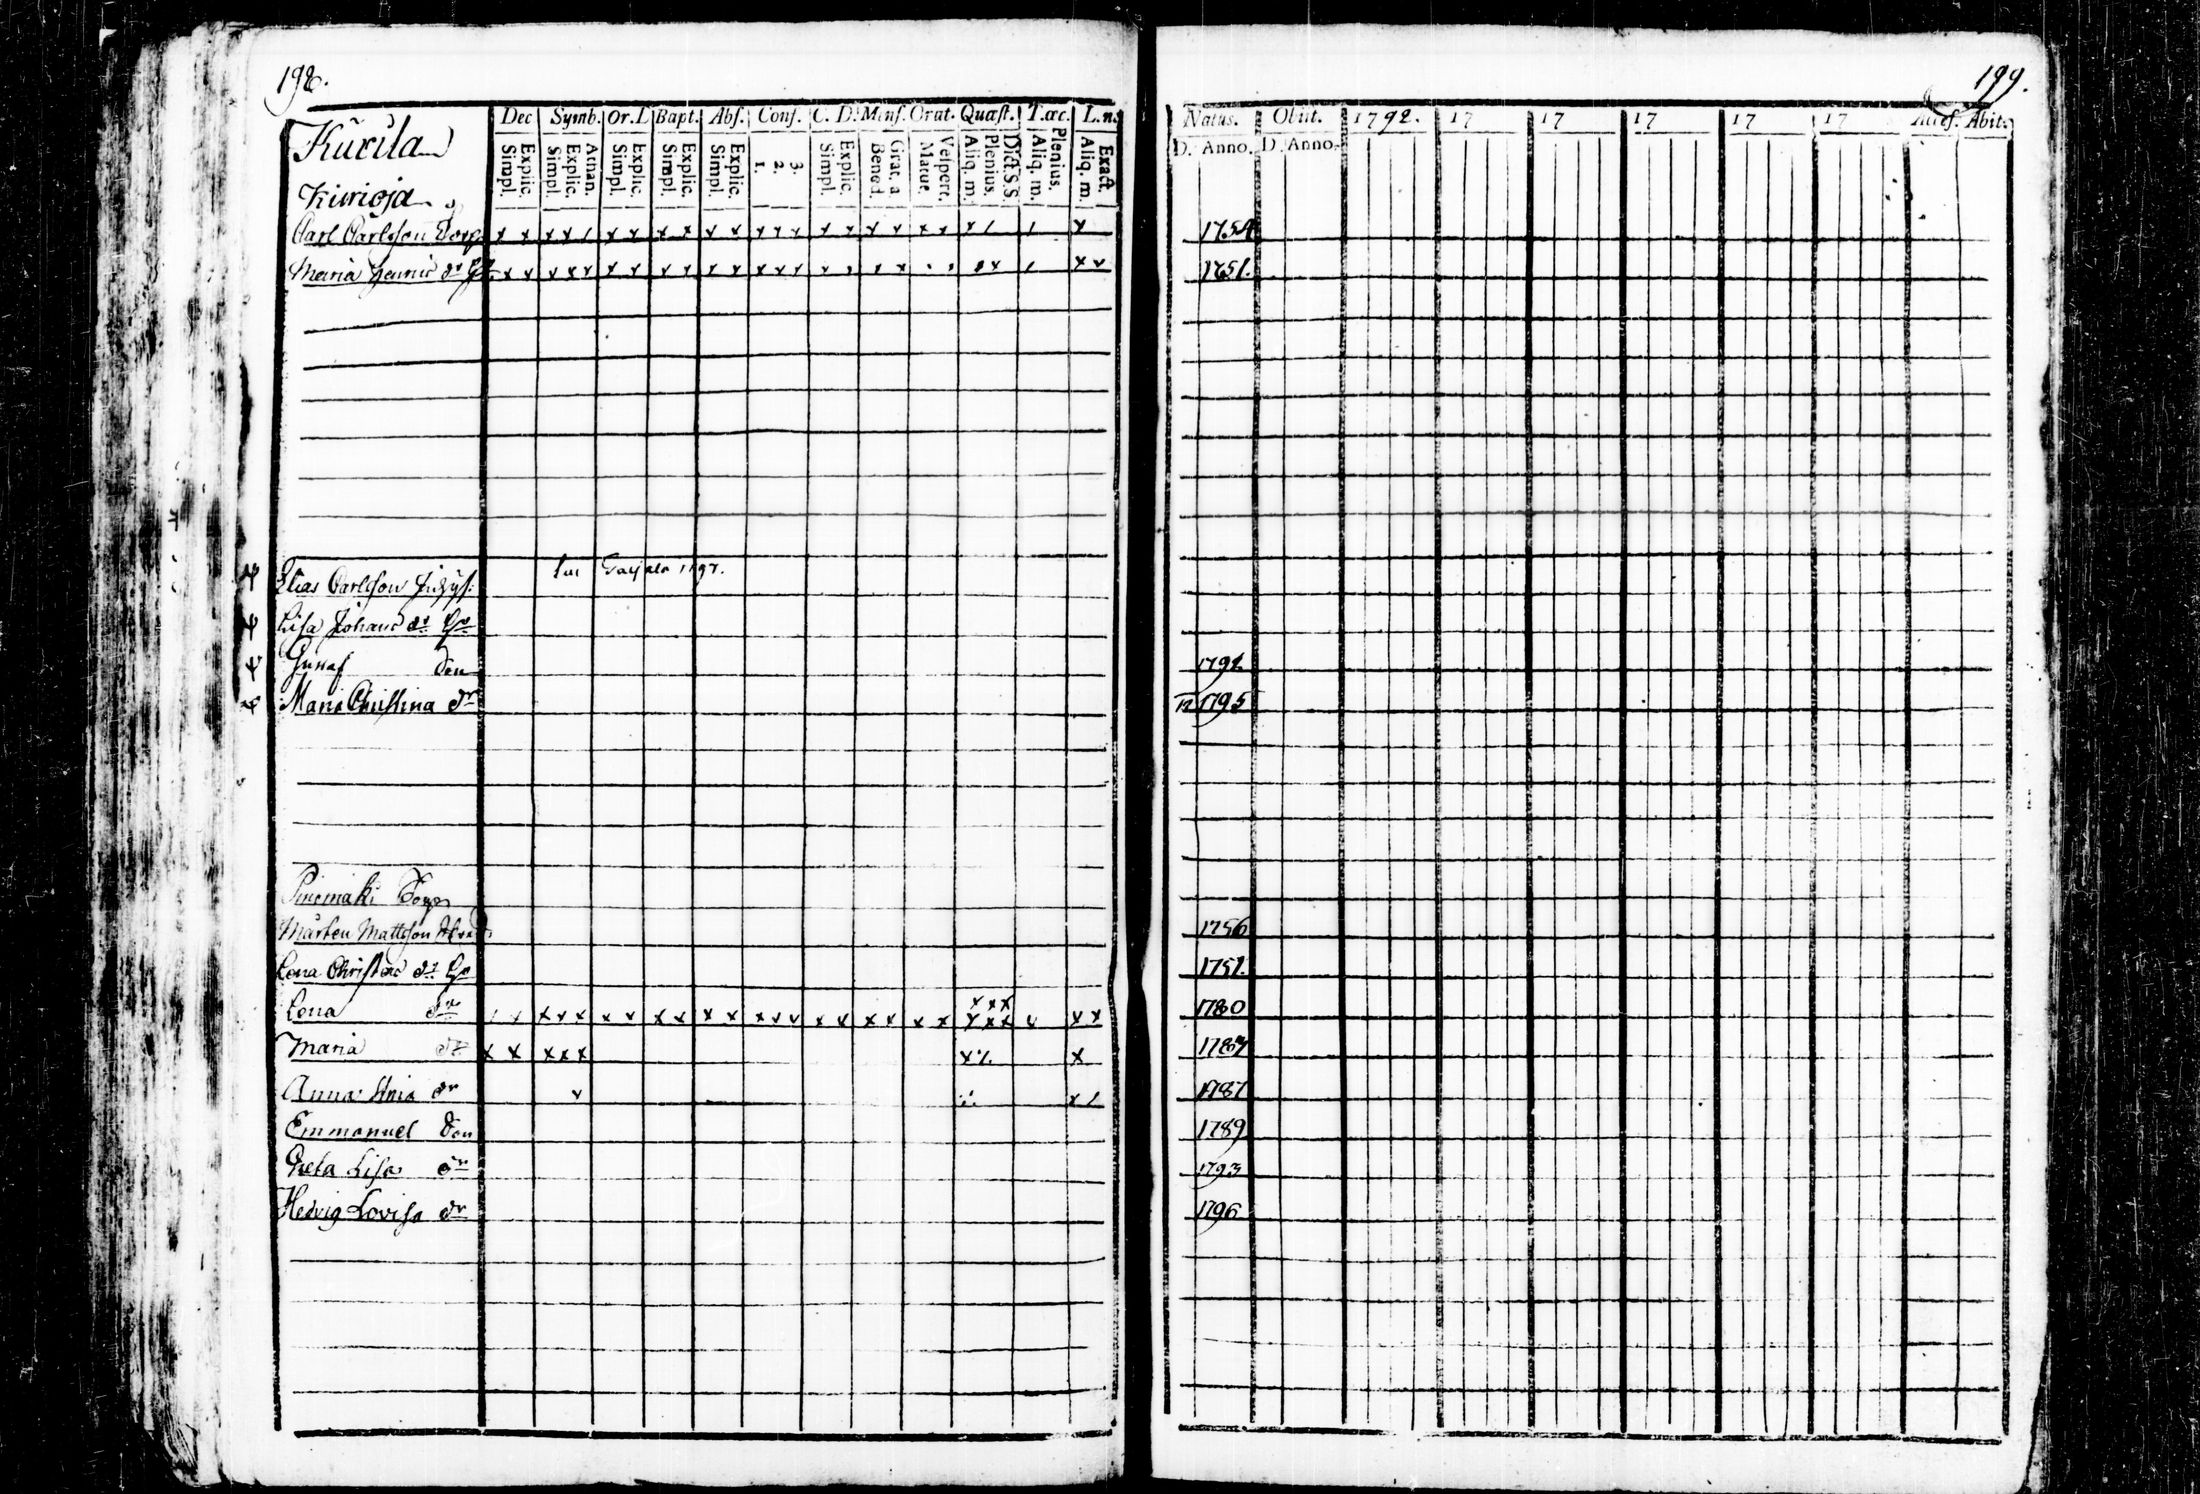 198.
199.
Dec Symb. Or. D Bapt. Abs. Conf. C. D. Mens. Orat. Quæst. T. œc. L. n.
Simpl. Explic. Simpl. Explic. Athan. Simpl. Explic. Simpl. Explic. Simpl. Explic. 1. 2. 3. Simpl. Explic. Bened. Grat. a. Matut. Vespert. Aliq. m. Plenius. Dict. S.S. Aliq. m. Plenius. Aliq. m. Exact.
Natus. Obiit. 1792. 17 17 17 17 17 Acces. Abit.
D. Anno. D. Anno.
Kurila
Kiurioja
Carl Carlsson Torp 1754
Maria 1751.
Elias Carlsson 1797.
Lisa Johans dr
Gustaf Son 1791
Maria Christina dr 1795
Torp
Mårten Mattsson 1756
Lena Christers dr 1751.
Lena dr 1780
Maria dr 1784
Anna Stina dr 1787
Emmanuel Son 1789
Greta Lisa dr 1793
Hedvig Lovisa dr 1796